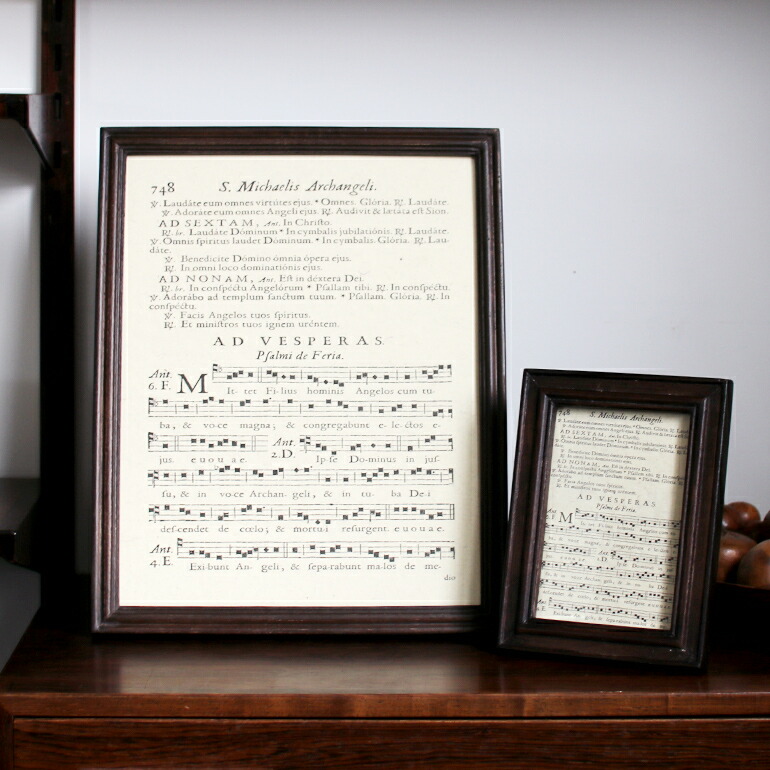 748 S. Michaelis Archangeli.
℣. Laudáte eum omnes virtútes ejus. * Omnes. Glória. ℟. Laudáte.
℣. Adoráte eum omnes Angeli ejus. ℟. Audivit & lætáta est Sion.
AD SEXTAM, Ant. In Christo.
℟. br. Laudáte Dóminum * In cymbalis jubilatiónis. ℟. Laudáte.
℣. Omnis spíritus laudet Dóminum. * In cymbalis. Glória. ℟. Lau-
dáte.
℣. Benedícite Dómino ómnia ópera ejus.
℟. In omni loco dominatiónis ejus.
AD NONAM, Ant. Est in déxtera Dei.
℟. br. In conspéctu Angelórum * Psallam tibi. ℟. In conspéctu.
℣. Adorábo ad templum sanctum tuum. * Psallam. Glória. ℟. In
conspéctu.
℣. Facis Angelos tuos spíritus.
℟. Et minístros tuos ignem uréntem.
AD VESPERAS.
Psalmi de Feria.
Ant.
6. F. M
It- tet Fi-lius hominis Angelos cum tu-
ba, & vo-ce magna; & congregabunt e-le-ctos e-
Ant.
2.D.
jus. e u o u a e. Ipse Do-minus in jus-
su, & in vo-ce Archan- geli, & in tu- ba De-i
descendet de cœlo; & mortu-i resurgent. e u o u a e.
Ant.
4. E.
Exi-bunt An- geli, & sepa-rabunt ma-los de me-
dio
748 S. Michaelis Archangeli.
AD SEXTAM
AD NONAM
AD VESPERAS
Psalmi de Feria.
Ant
M